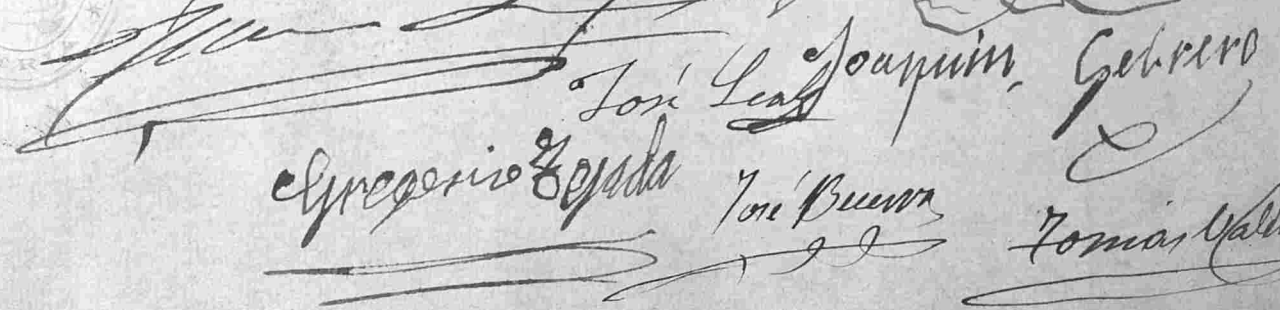 José Leal Joaquin Gebrero
Gregorio Tejada José Becerra Tomás